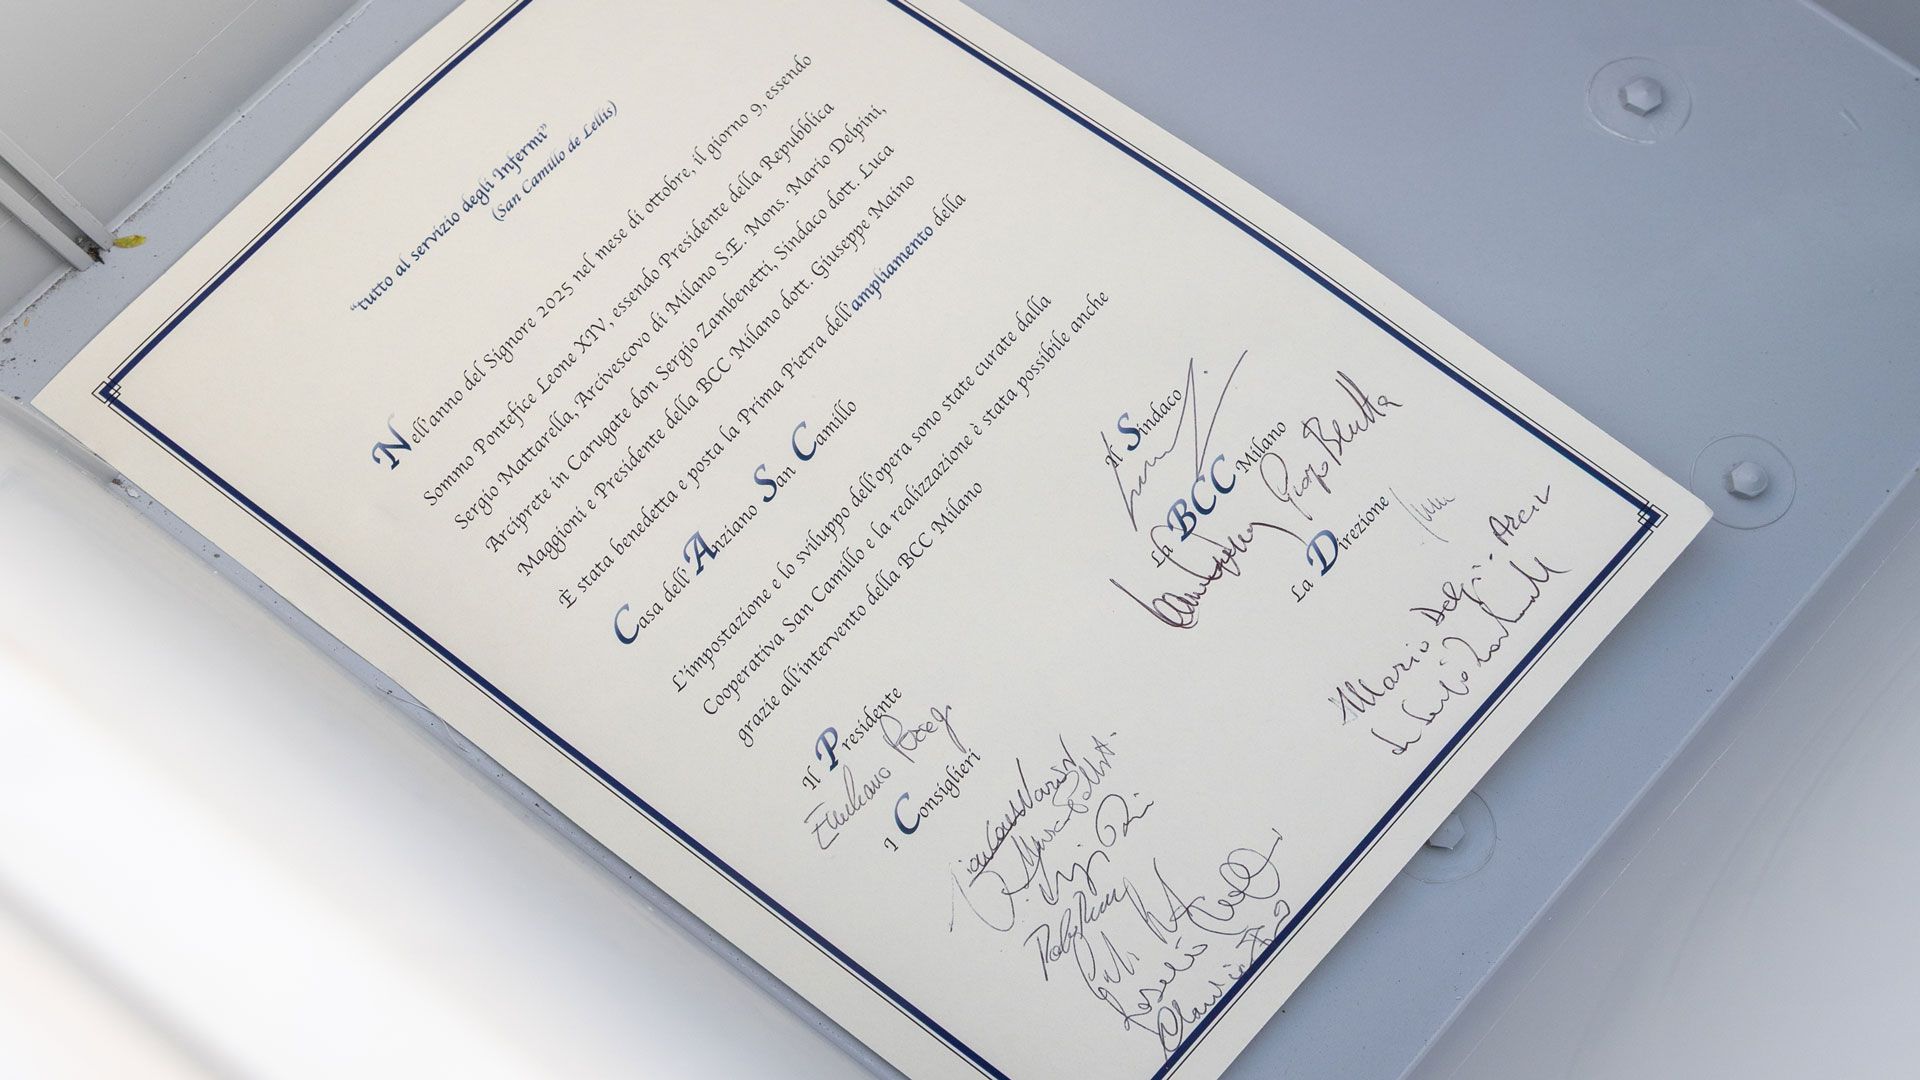 "tutto al servizio degli Infermi"
(San Camillo de Lellis)
Nell'anno del Signore 2025 nel mese di ottobre, il giorno 9, essendo
Sommo Pontefice Leone XIV, essendo Presidente della Repubblica
Sergio Mattarella, Arcivescovo di Milano S.E. Mons. Mario Delpini,
Arciprete in Carugate don Sergio Zambenetti, Sindaco dott. Luca
Maggioni e Presidente della BCC Milano dott. Giuseppe Maino
È stata benedetta e posta la Prima Pietra dell'ampliamento della
Casa dell'Anziano San Camillo
L'impostazione e lo sviluppo dell'opera sono state curate dalla
Cooperativa San Camillo e la realizzazione è stata possibile anche
grazie all'intervento della BCC Milano
Il Presidente
Emiliano
I Consiglieri
Il Sindaco
La BCC Milano
La Direzione
Mario